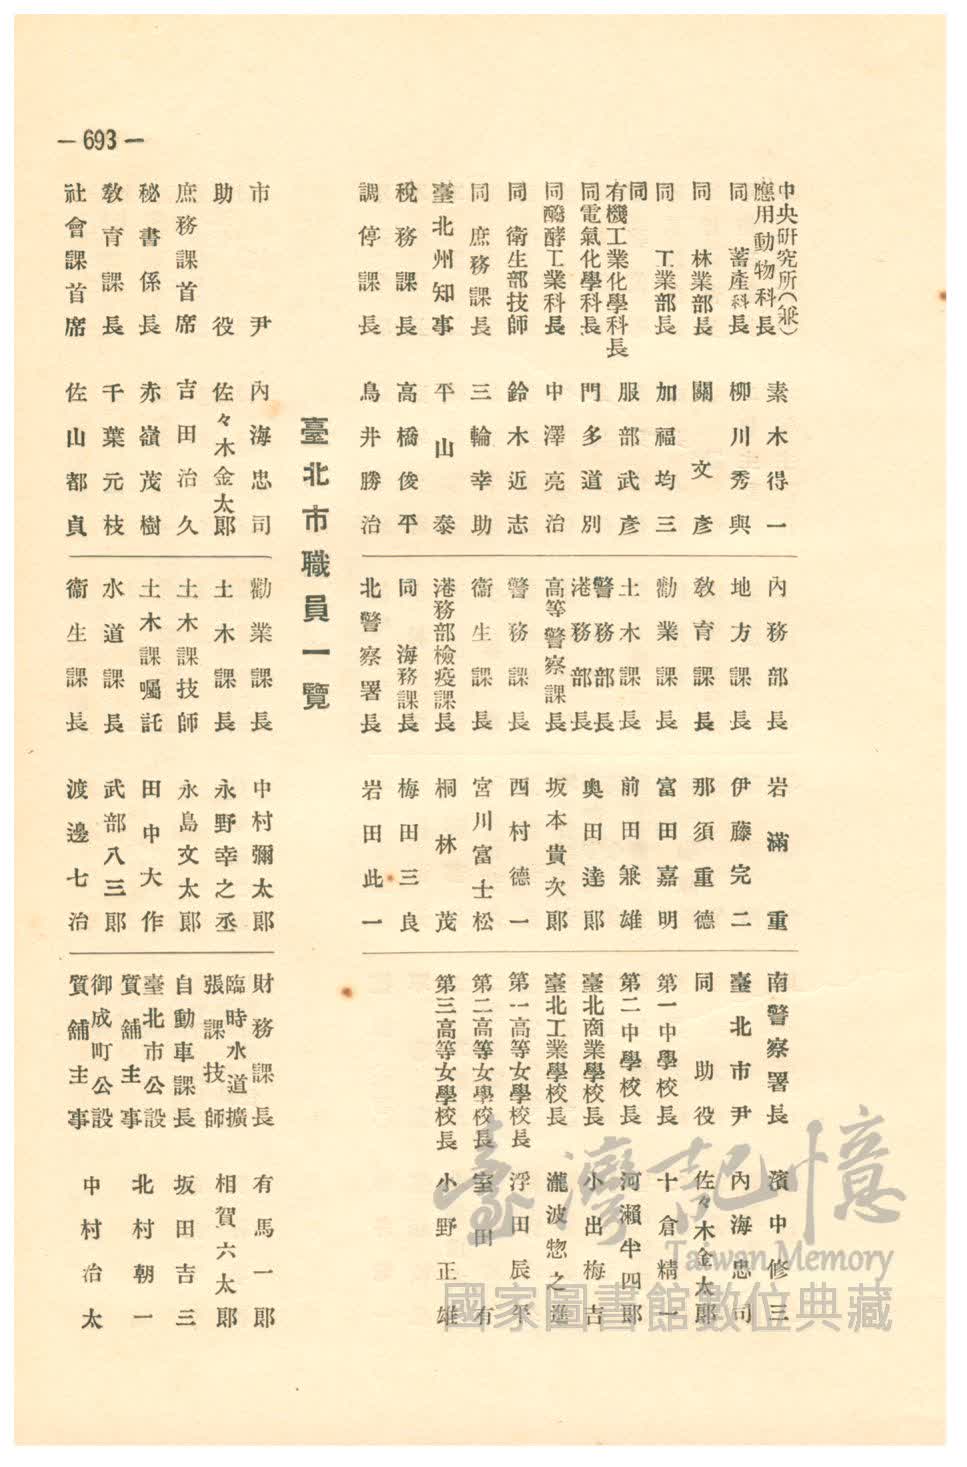 — 693 —
中央研究所（兼）應用動物科長 素木得一
同 蓄產科長 柳川秀興
同 林業部長 關文彥
同 工業部長 加福均三
同 有機工業化學科長 服部武彥
同電氣化學科長 門多道別
同醱酵工業科長 中澤亮治
同 衛生部技師 鈴木近志
同庶務課長 三輪幸助
臺北州知事 平山泰
稅務課長 高橋俊平
調停課長 鳥井勝治
內務部長 岩滿重
地方課長 伊藤完二
敎育課長 那須重德
勸業課長 富田嘉明
土木課長 前田兼雄
警務部港務部長 奧田達郞
高等警察課長 坂本貴次郞
警務課長 西村德一
衞生課長 宮川富士松
港務部檢疫課長 桐林茂
同 海務課長 梅田三良
北警察署長 岩田此一
南警察署長 濱中修三
臺北市尹 內海忠司
同助役 佐々木金太郞
第一中學校長 十倉精一
第二中學校長 河瀨半四郞
臺北商業學校長 小出梅吉
臺北工業學校長 瀧波惣之進
第一高等女學校長 浮田辰平
第二高等女學校長 室田有
第三高等女學校長 小野正雄
臺北市職員一覽
市尹 內海忠司
助役 佐々木金太郞
庶務課首席 吉田治久
秘書係長 赤嶺茂樹
敎育課長 千葉元枝
社會課首席 佐山都貞
勸業課長 中村彌太郞
土木課長 永野幸之丞
土木課技師 永島文太郞
土木課囑託 田中大作
水道課長 武部八三郞
衞生課長 渡邊七治
財務課長 有馬一郞
臨時水道擴張課技師 相賀六太郞
自動車課長 坂田吉三
臺北市公設質舖主事 北村朝一
御成町公設質舖主事 中村治太
臺灣記憶
Taiwan Memory
國家圖書館數位典藏